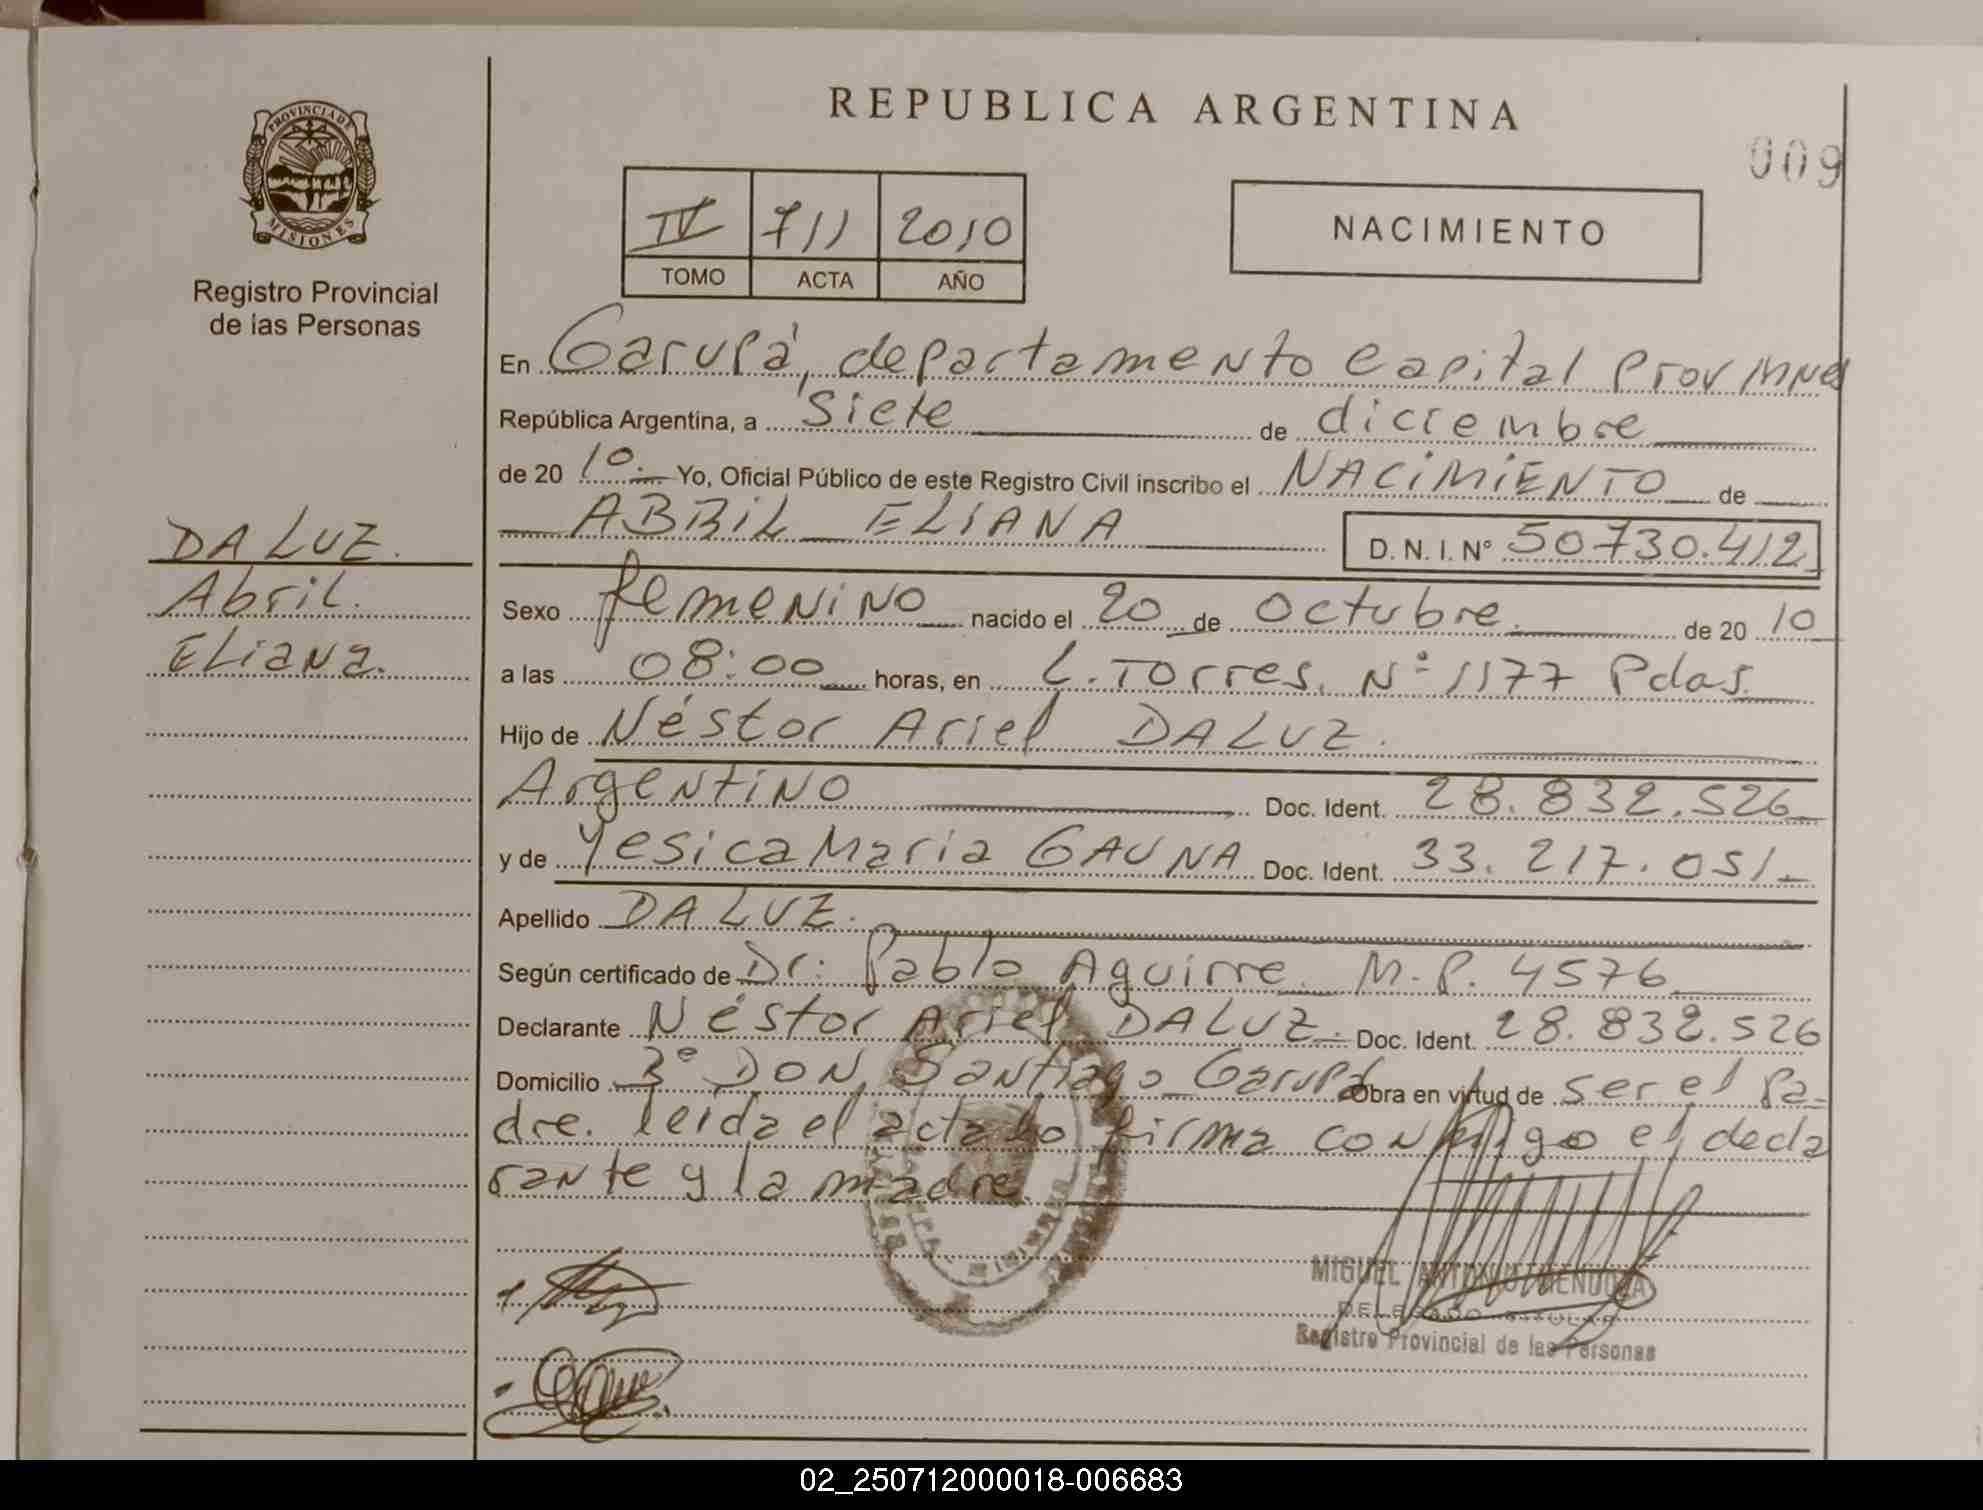 REPUBLICA ARGENTINA
009
PROVINCIA DE
MISIONES
Registro Provincial
de las Personas
IV 711 2010
TOMO ACTA AÑO
NACIMIENTO
En Garupá, departamento Capital Prov Mnes
República Argentina, a siete de diciembre
de 20 10. Yo, Oficial Público de este Registro Civil inscribo el NACIMIENTO de
ABRIL ELIANA D. N. I. Nº 50730.412
DA LUZ.
Abril.
Eliana.
Sexo femenino nacido el 20 de Octubre. de 20 10
a las 08:00 horas, en L. Torres. Nº 1177 Pdas.
Hijo de Néstor Ariel DA LUZ.
Argentino Doc. Ident. 28.832.526
y de Yesica Maria GAUNA Doc. Ident. 33.217.051
Apellido DA LUZ.
Según certificado de Dr: Pablo Aguirre. M.P. 4576
Declarante Néstor Ariel DA LUZ. Doc. Ident. 28.832.526
Domicilio 3º DON Santiago Garupá Obra en virtud de ser el Pa-
dre. leida el acta lo firma conmigo el decla
rante y la madre.
MIGUEL ANTONIO MENDOZA
DELEGADO TITULAR
Registro Provincial de las Personas
02_250712000018-006683